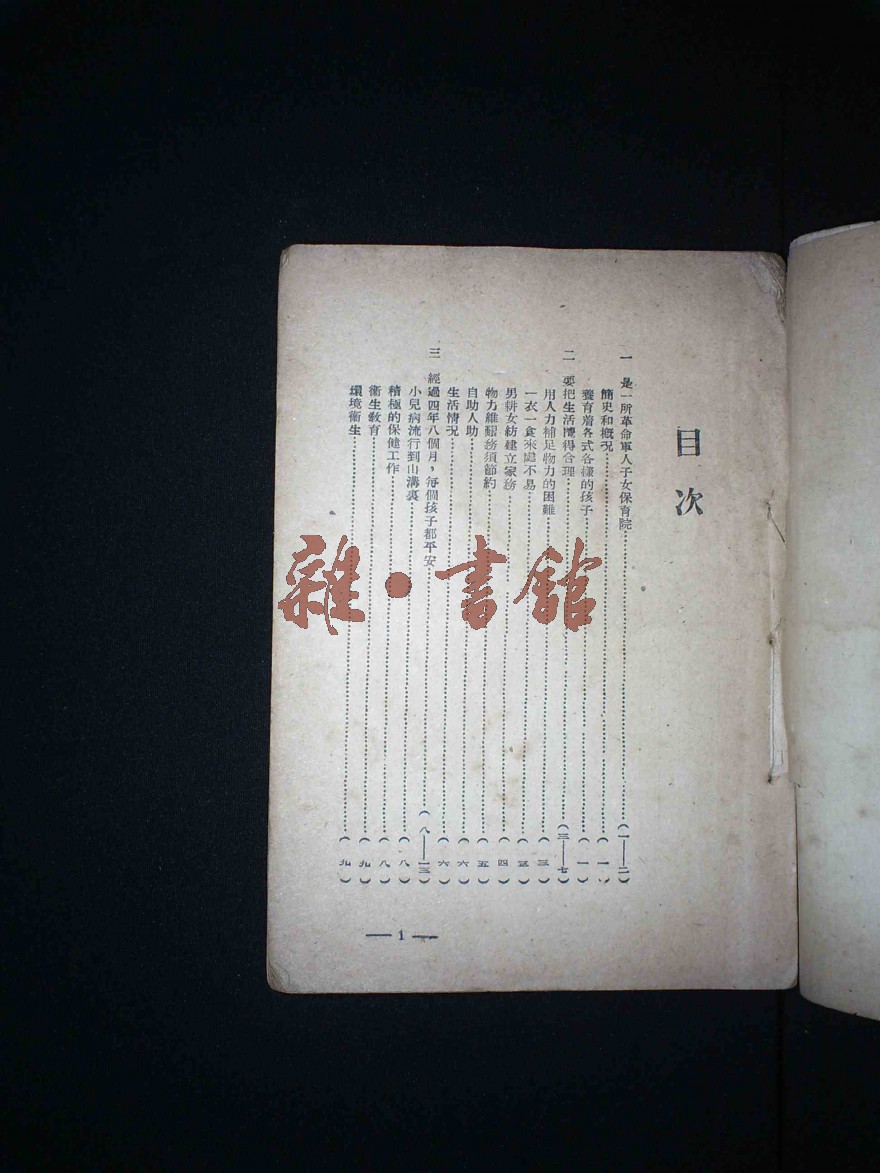 目次
一　是一所革命軍人子女保育院……(一—二)
簡史和概况……(一)
養育着各式各樣的孩子……(一)
二　要把生活攪得合理……(三—七)
用人力補足物力的困難……(三)
一衣一食來處不易……(三)
男耕女紡建立家務……(四)
物力維艱務須節約……(五)
自助人助……(六)
生活情况……(六)
三　經過四年八個月，每個孩子都平安……(八—一三)
小兒病流行到山溝裏……(八)
積極的保健工作……(八)
衞生教育……(九)
環境衞生……(九)
— 1 —
雜·書館